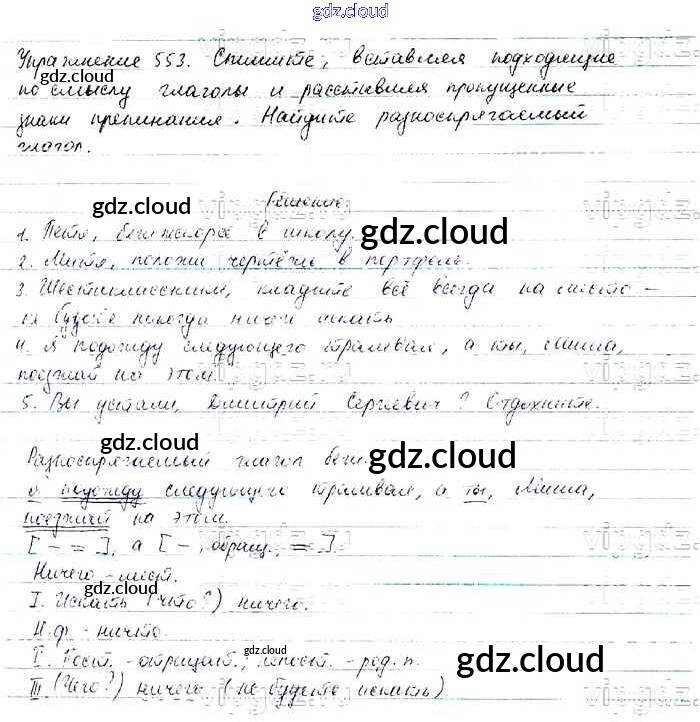 gdz.cloud
Упражнение 553. Спишите, вставляя подходящие
gdz.cloud
по смыслу глаголы и расставляя пропущенные
знаки препинания. Найдите разноспрягаемый
глагол.
Решение.
gdz.cloud
1. Петя, беги скорее в школу.
gdz.cloud
2. Митя, положи чертёж в портфель.
3. Шестиклассники, кладите всё всегда на место –
не будете никогда ничего искать
4. Я подожду следующего трамвая, а ты, Миша,
поезжай на этом.
5. Вы устали, Дмитрий Сергеевич? Отдохните.
gdz.cloud
Разноспрягаемый глагол беги.
gdz.cloud
Я подожду следующего трамвая, а ты, Миша,
поезжай на этом.
[ – = ], а [ – , обращ., = ].
Ничего – мест.
gdz.cloud
I. Искать (что?) ничего.
Н.ф. – ничто.
gdz.cloud
II. Пост. – отрицат.; непост. – род. п.
gdz.cloud
III. (Чего?) ничего (не будете искать)